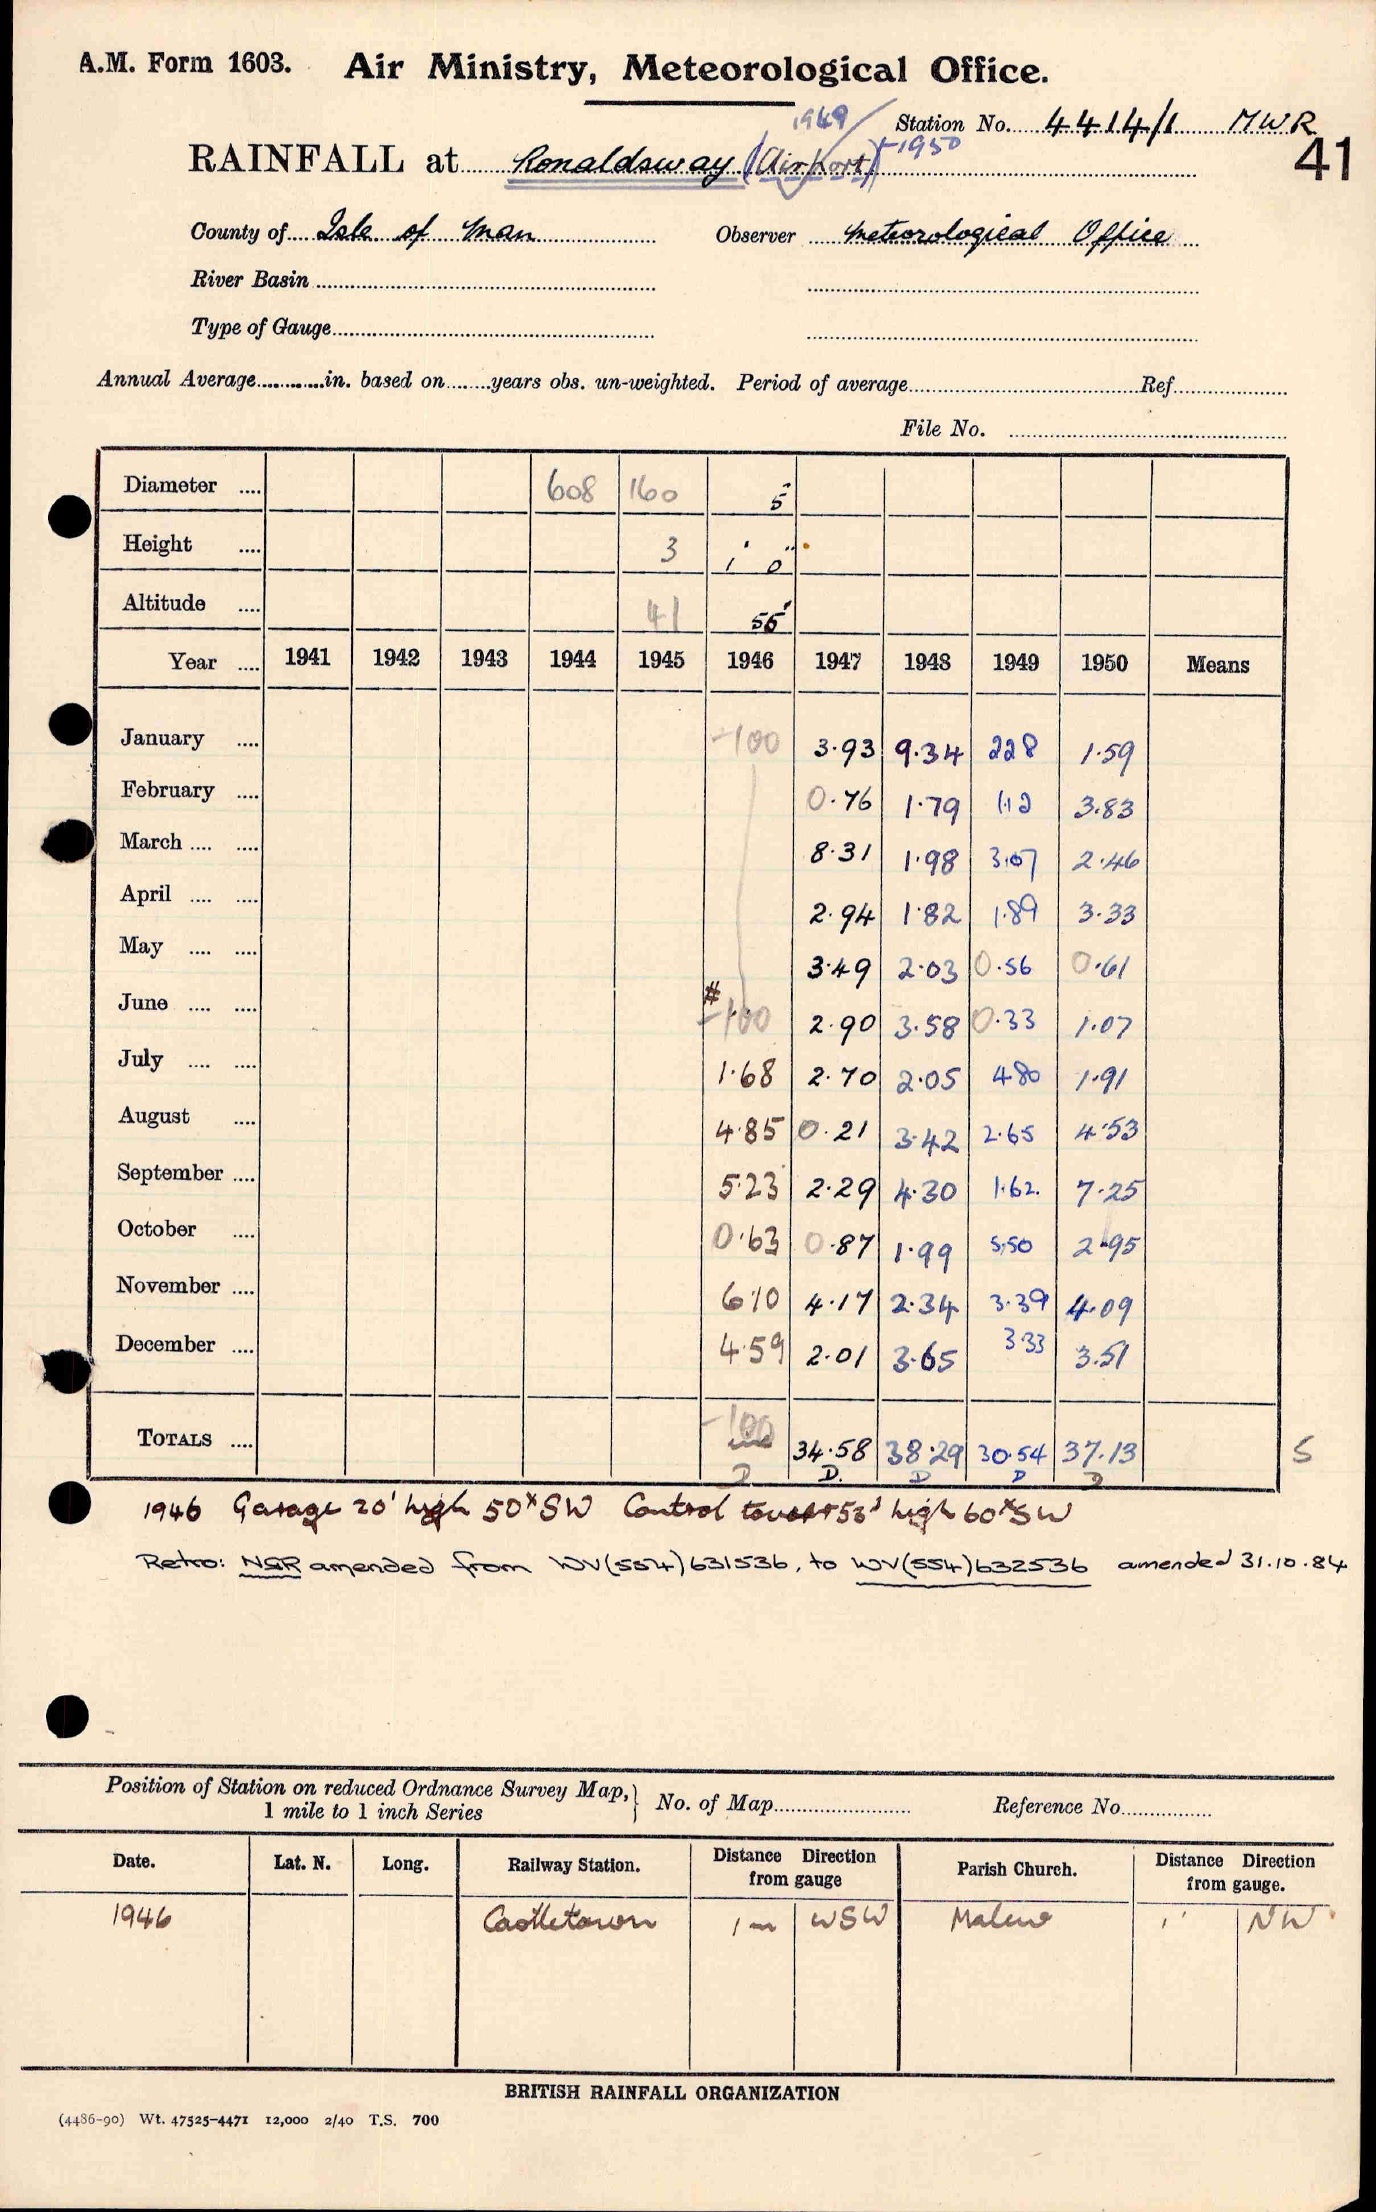 A.M. Form 1603. Air Ministry, Meteorological Office.
1949 Station No. 4414/1 MWR
RAINFALL at Ronaldsway (Airport) -1950 41
County of Isle of Man Observer Meteorological Office
River Basin
Type of Gauge
Annual Average in. based on years obs. un-weighted. Period of average Ref.
File No.
Diameter 608 160 5"
Height 3 1' 0"
Altitude 41 55'
Year 1941 1942 1943 1944 1945 1946 1947 1948 1949 1950 Means
January -100 3.93 9.34 2.28 1.59
February 0.76 1.79 1.12 3.83
March 8.31 1.98 3.07 2.46
April 2.94 1.82 1.89 3.33
May 3.49 2.03 0.56 0.61
June # -100 2.90 3.58 0.33 1.07
July 1.68 2.70 2.05 4.80 1.91
August 4.85 0.21 3.42 2.65 4.53
September 5.23 2.29 4.30 1.62 7.25
October 0.63 0.87 1.99 5.50 2.95
November 6.10 4.17 2.34 3.39 4.09
December 4.59 2.01 3.65 3.33 3.51
TOTALS -100 34.58 38.29 30.54 37.13 5
D D. D D D
1946 Garage 20' high 50x SW Control tower 53' high 60x SW
Retro: NGR amended from WV(554)631536, to WV(554)632536 amended 31.10.84
Position of Station on reduced Ordnance Survey Map, 1 mile to 1 inch Series } No. of Map Reference No.
Date. Lat. N. Long. Railway Station. Distance Direction from gauge Parish Church. Distance Direction from gauge.
1946 Castletown 1 m WSW Malew 1 " NW
BRITISH RAINFALL ORGANIZATION
(4486-90) Wt. 47525-4471 12,000 2/40 T.S. 700